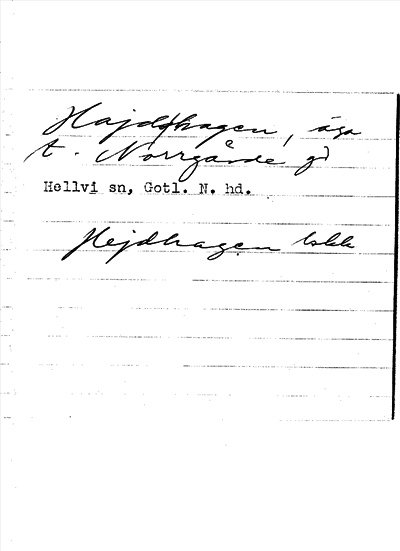 Hajdhagen, äga
t. Norrgårde gd
Hellvi sn, Gotl. N. hd.
Hejdhagen